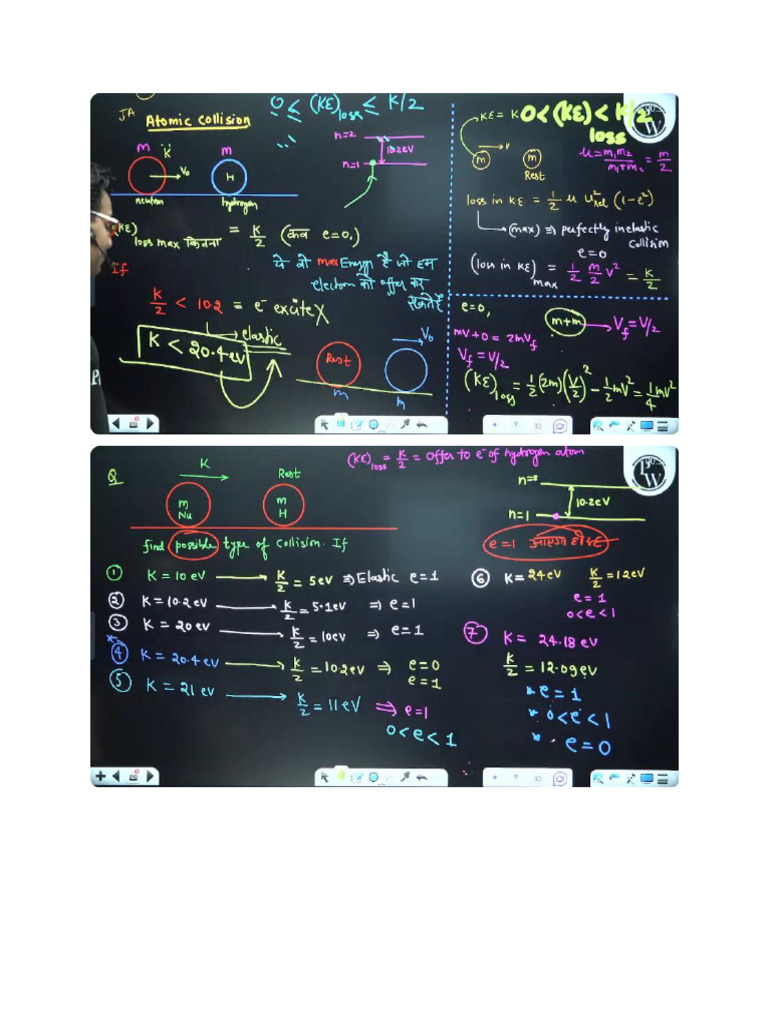 JA
Atomic Collision
0 ≤ (KE)loss ≤ K/2
m
K
V₀
m
H
neutron
hydrogen
n=2
10.2eV
n=1
KE)loss max कितना = K/2 (जब e=0,)
ये वो max Energy है जो हम
electron को offer कर
सकते हैं
If
K/2 < 10.2 = e⁻ excite X
elastic
K < 20.4 ev
Rest
m
V₀
m
KE = K
0<(KE)<K/2
loss
W
m
v
m
Rest
μ = m₁m₂/m₁+m₂ = m/2
loss in KE = 1/2 μ u²rel (1-e²)
(max) ⇒ perfectly inelastic
collision
e=0
(loss in KE)max = 1/2 m/2 v² = K/2
e=0,
m+m → Vf = V/2
mv+0 = 2mVf
Vf = V/2
(KE)loss = 1/2 (2m)(V/2)² - 1/2 mv² = 1/4 mv²
Q
K
Rest
m
Nu
m
H
(KE)loss = K/2 = Offer to e⁻ of hydrogen atom
P
W
10.2eV
n=1
find possible type of collision. If
e=1
① K = 10 eV → K/2 = 5eV ⇒ Elastic e=1
② K=10.2eV → K/2 = 5.1eV ⇒ e=1
③ K = 20eV → K/2 = 10ev ⇒ e=1
④ K = 20.4 ev → K/2 = 10.2ev ⇒ e=0
e=1
⑤ K = 21 ev → K/2 = 11eV ⇒ e=1
0<e<1
⑥ K= 24eV K/2 = 12eV
e = 1
0<e<1
⑦ K = 24.18 ev
K/2 = 12.09ev
* e = 1
* 0<e<1
* e = 0